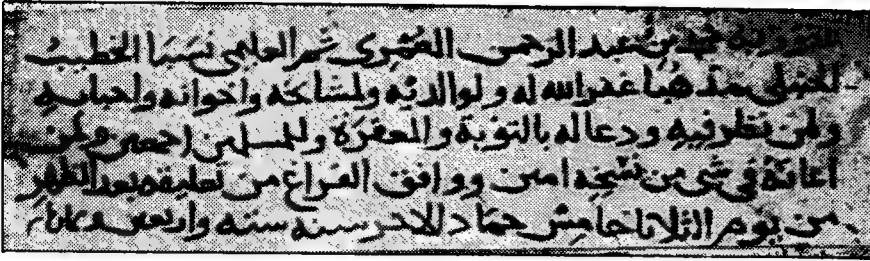 محمد بن عبد الرحمن العُمَرِي ثم العليمي نسَبَا الخطيبُ
الحنبلي مذهبا غفر الله له ولوالديه ولمشايخه واخوانه واحبابه
ولمن نظر فيه ودعا له بالتوبة والمغفرة وللمسلمين اجمعين ولمن
اعانه في شي من نسخِه امين ووافق الفراغ من تعليقه بعد الظهر
من يوم الثلاثا خامس جماد الاخر سنه سته واربعين